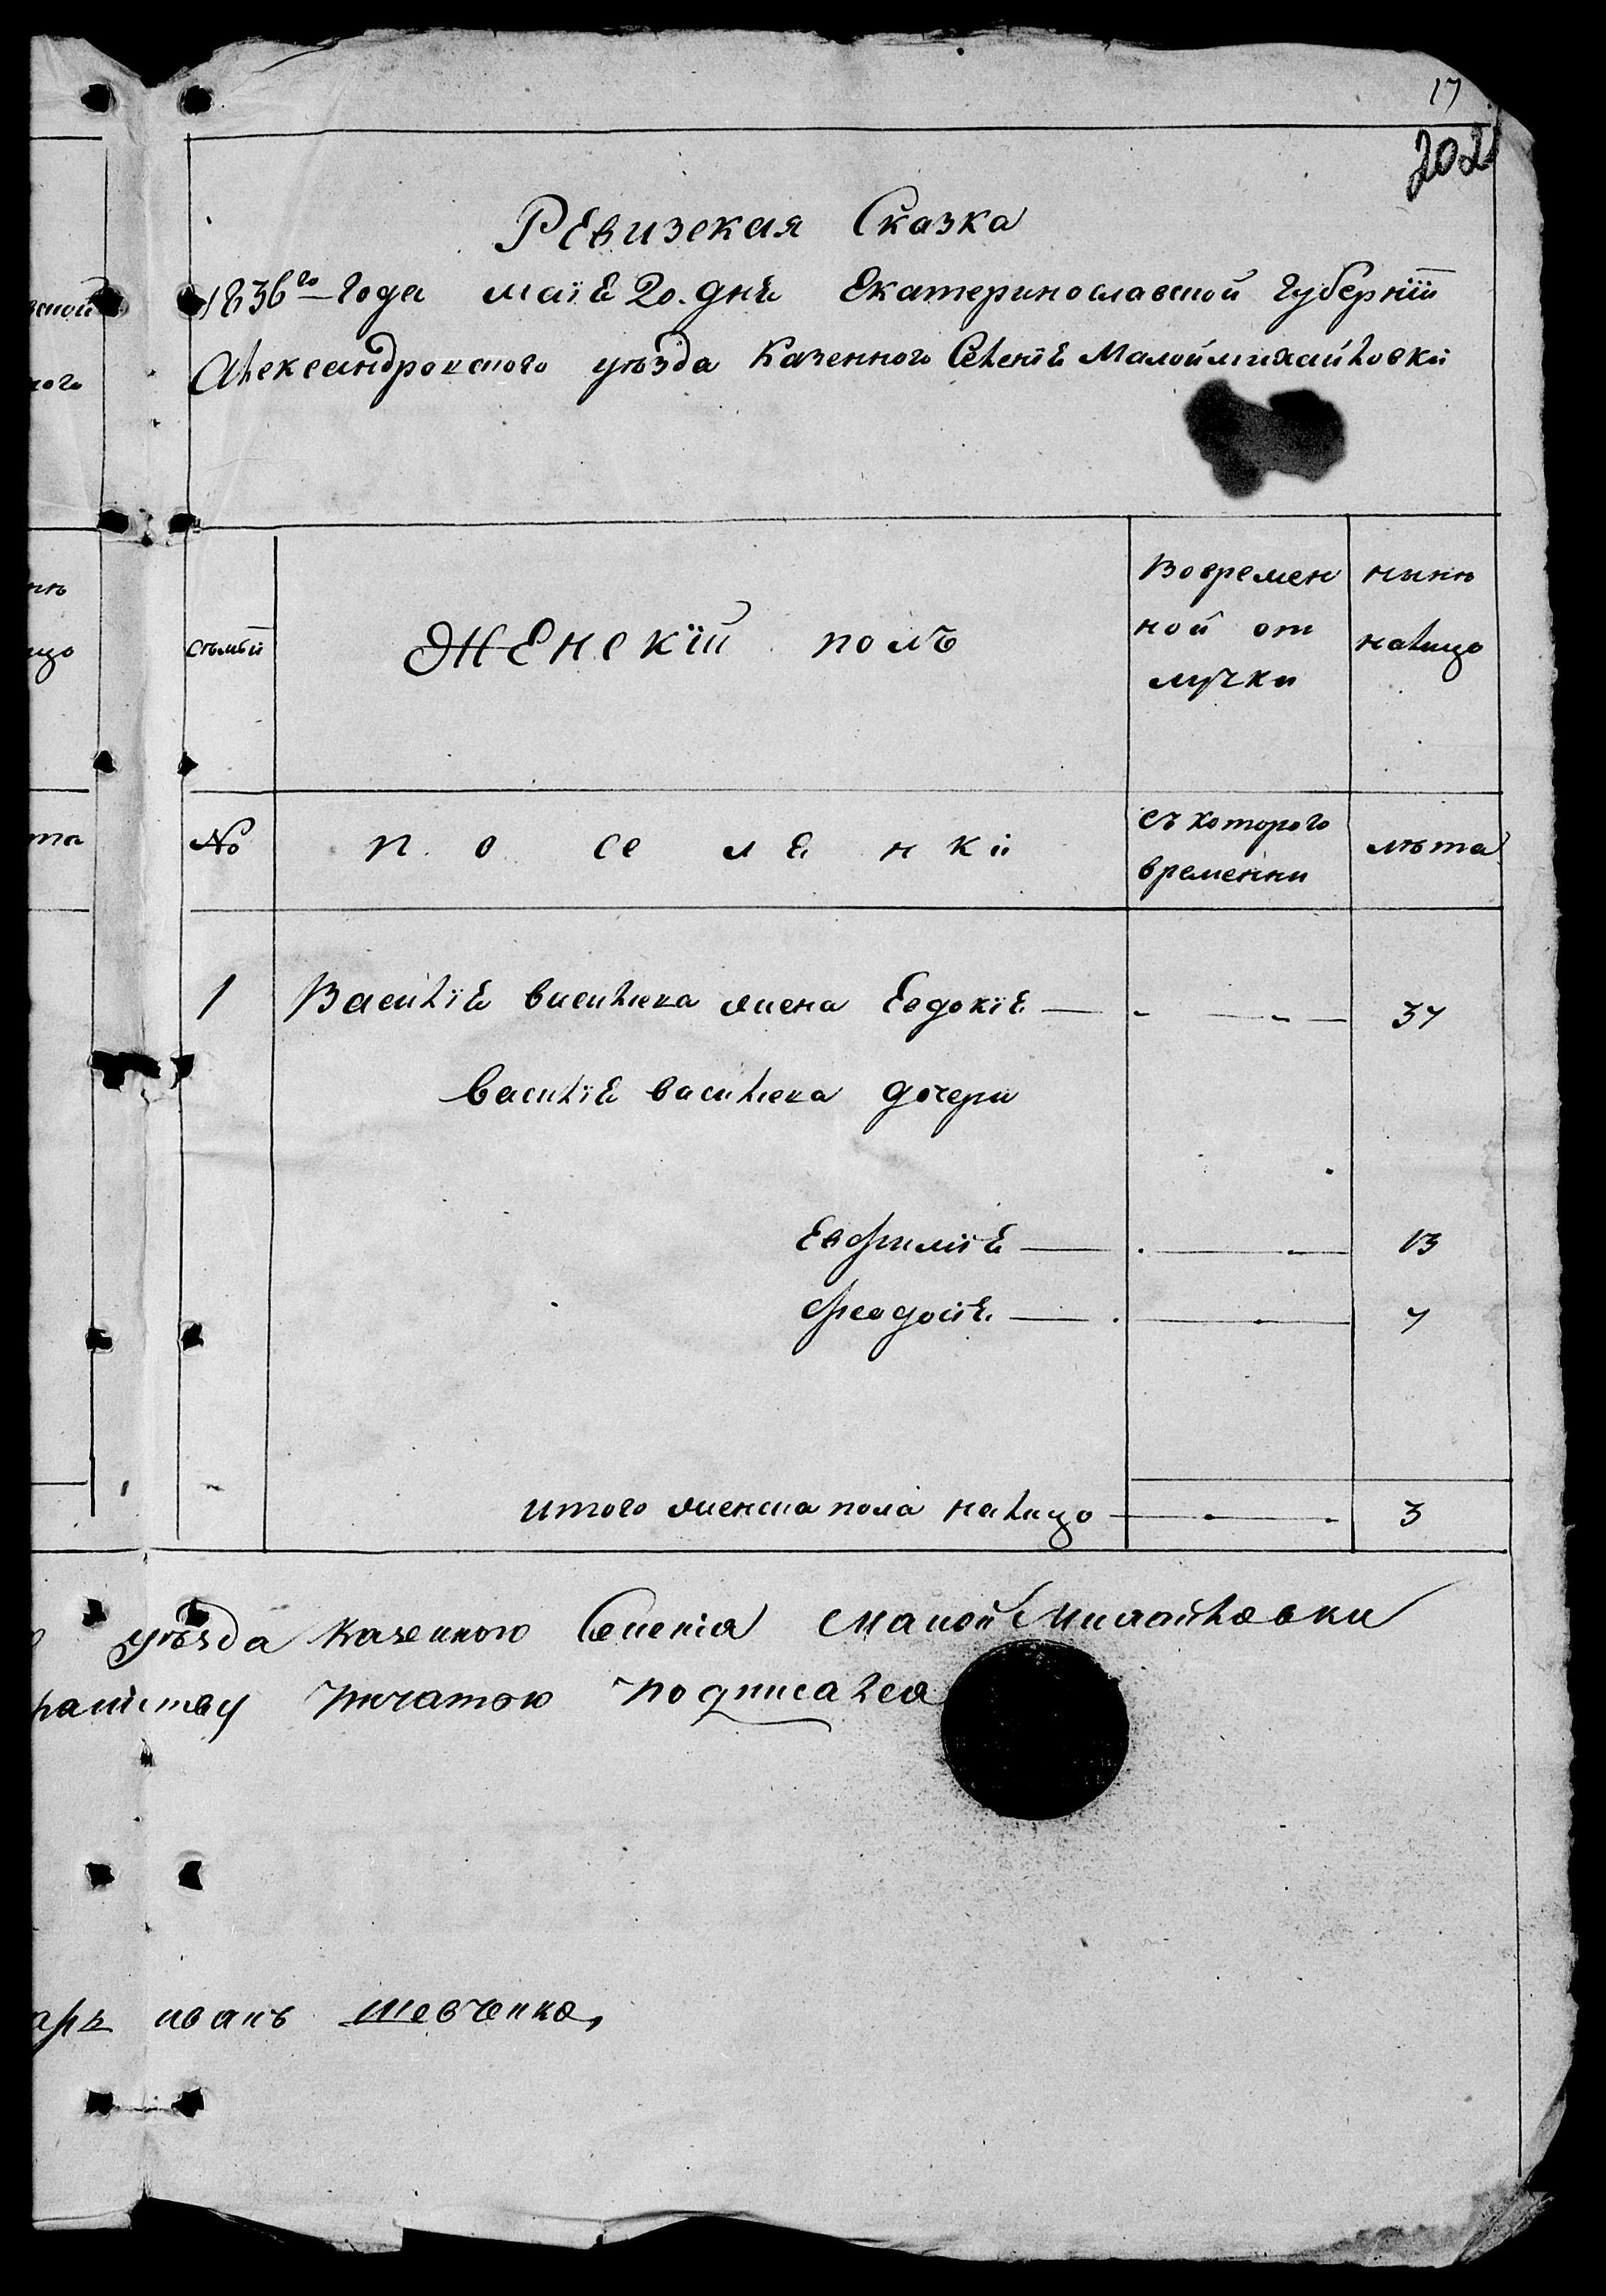 17
202
Ревизская Сказка
1836го года маія 20. дня Екатеринославской губерніи
Александровского уѣзда Казенного Селенія Малоймихайловки
вской
ного
семьи
Женскій полъ
Вовремен
ной от
лучки
нынѣ
налицо
нѣ
цо
№
п о се ля н ки
съ которого
временни
лѣта
та
1 Василія василива жена Евдокія — - — - — 37
Василія василива дочери
Евфимія — . — - — 13
Феодосія — . — . — 7
итого женска пола налицо — . — . 3
уѣзда казенного Селенія Малой Михайловки
печатою подписался
арь иванъ шевченко,